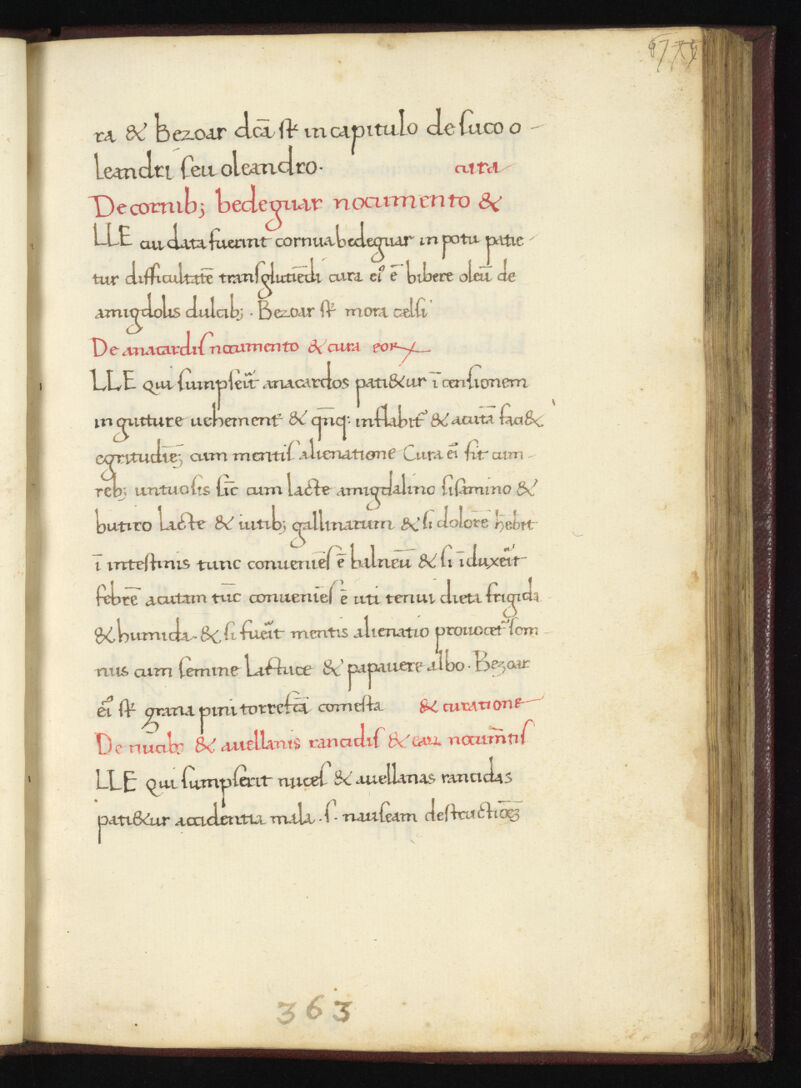 ra & Bezoar dcā st̄ in capitulo de suco o-
leandri seu oleandro. cura
De cornib; bedeguar nocumento &
LLE cui data fuerint cornua bedeguar in potu patie-
tur difficultatē transglutiēdi cura eiꝰ ē bibere oleū de
amigdolis dulcib; . Bezoar st̄ mora celsi
De anacardis nocumento & cura eoꝝ
LLE qui sumpserit anacardos pati&ur ī censionem
in gutture uehement̄ & q̄nq: inflabit̄ & acutā faci&
egritudiē; cum mentis alienatione Cura ei sit cum
reb; untuosis sic̄ cum lacte amigdalino sisamino &
butiro lacte & iutib; gallinarum & si dolorē hēbit
ī intestinis tunc conueniēs ē balneū & si īduxerit
febrē acutam tūc conueniēs ē uti tenui dieta frigida
& humida. & si fuerit mentis alienatio prouocet̄ som
nus cum semine lactuce & papauere albo. Bezoar
ei st̄ grana pini torrefcā comesta & curatione
De nucib; & auellanis rancidis & eaꝝ nocum̄tis
LLE qui sumpserit nuces & auellanas rancidas
pati&ur accidentia mala .s. nauseam destructiōꝫ
363